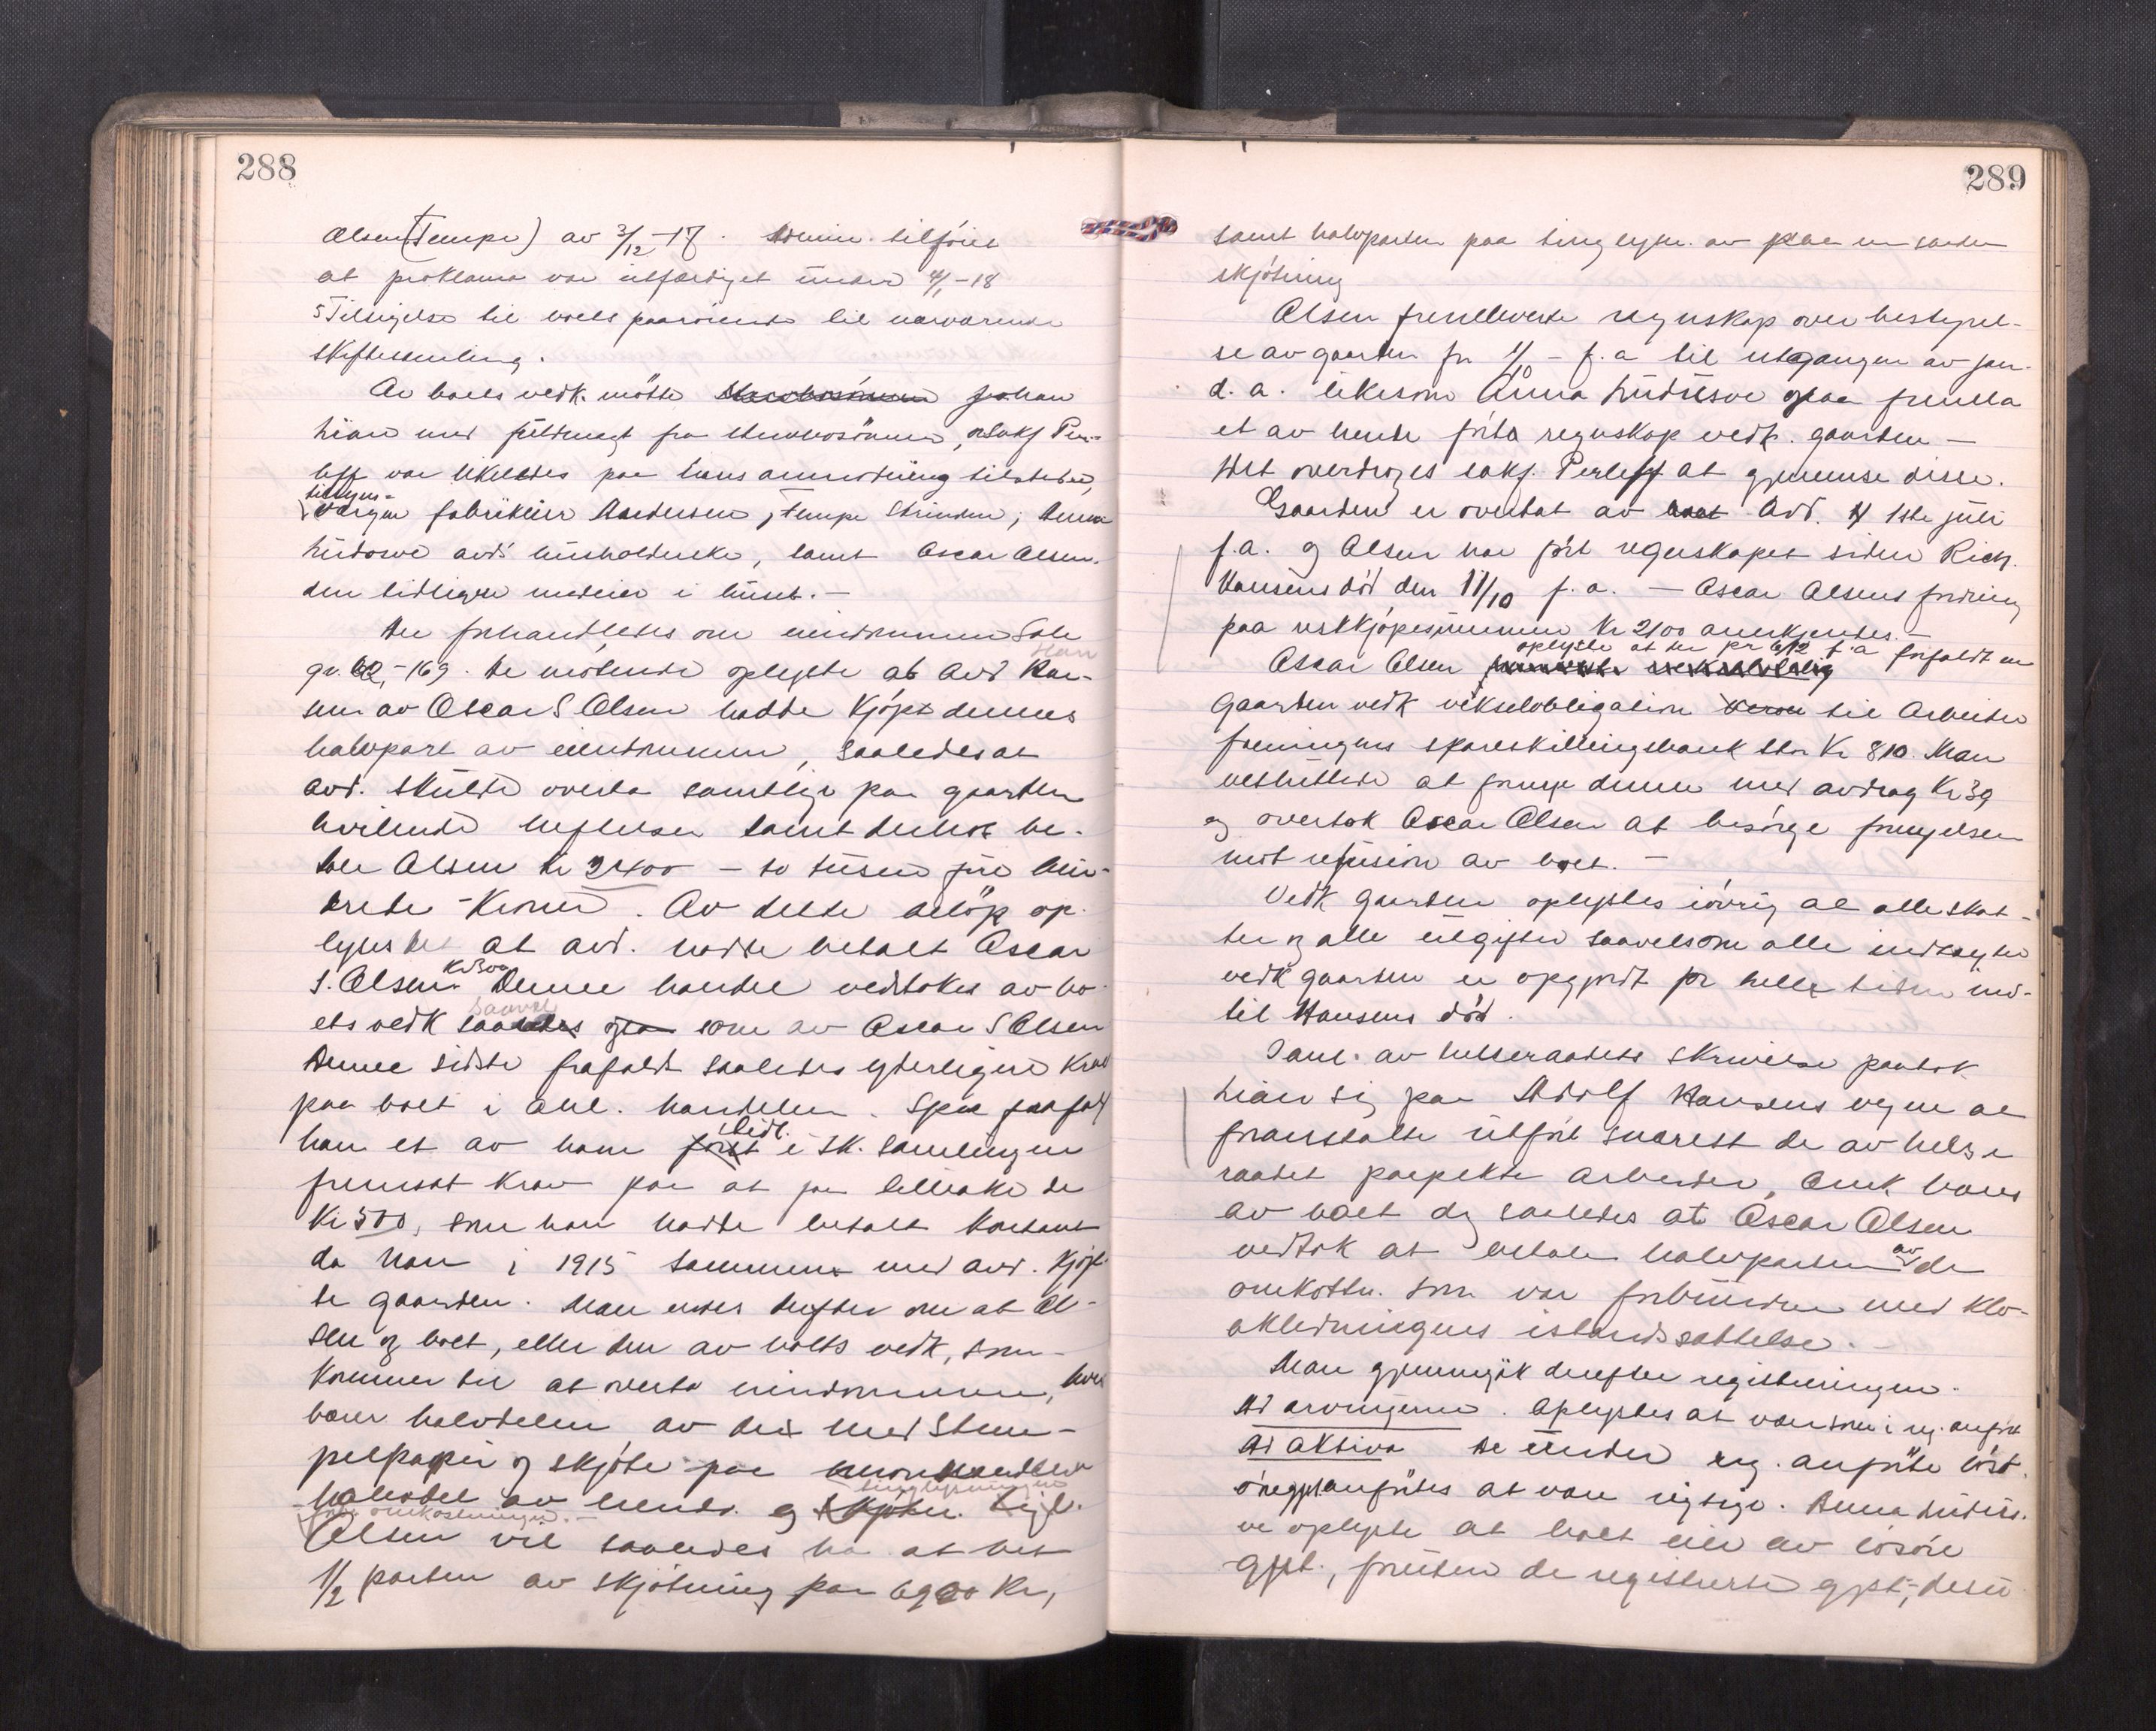 288
Olsen (Tempe) av 3/12-17. Admin. tilføiet
at proklama var utfærdiget under 4/1-18
5 Tilsigelse til boets paarørende til nærværende
skiftesamling.
Av boets vedk. møtte Johan
med fuldmagt fra , o.saksf. Per-
leff var likeledes paa hans anmodning tilstede,
tilsyns-
værgen fabrikeier Andersen, Tempe Strinden; Anna
avd's husholderske, samt Oscar Olsen,
den tidligere medeier i huset. —
Der forhandledes om eiendommen
gr. 62,-169. De møtende oplyste at avd Han-
sen av Oscar S Olsen hadde kjøpt dennes
halvpart av eiendommen, saaledes at
avd. skulde overta samtlige paa gaarden
hvilende heftelser samt derhos be-
tale Olsen kr 2400 — to tusen fire hun-
drede – Kroner. Av dette beløp op-
lystes at avd. hadde betalt Oscar
S. Olsen kr 300. Denne handel vedtokes av bo-
ets vedk saavel som av Oscar S Olsen
Denne sidste frafaldt saaledes yderligere krav
paa boet i anl. handelen. Spec frafaldt
han et av ham tidl. i sk. samlingen
fremsat krav paa at faa tilbake de
Kr 500, som han hadde betalt kontant
da han i 1915 sammen med avd. kjøp-
te gaarden. Man enedes derefter om at Ol-
sen og boet, eller den av boets vedk, som
kommer til at overta eiendommen, hver
bærer halvdelen av utg. med Stem-
pelpapir og skjøte paa
halvdel av eiend. og tinglysningen
omkostninger. —
Olsen vil saaledes ha at bet
1/2 parten av skjøtning paa 6900 Kr,
289
samt halvparten paa tinglysn. av en saadan
skjøtning
Olsen fremleverte regnskap over bestyrel-
se av gaarden fra 1/10 - f.a til utgangen av jan.
d.a. likesom Anna ogsaa fremla
et av hende ført regnskap vedk. gaarden —
Det overdroges saksf. Perleff at gjennemse disse.
Gaarden er overtat av Avd. 1ste juli
f.a. og Olsen har ført regnskapet siden Rich.
Hansens død den 11/10 f.a. — Oscar Olsens fordring
paa restkjøpesummen kr 2100 anerkjendtes. —
Oscar Olsen oplyste at der pr 6/12 f.a forfaldt en
Gaarden vedk vekselobligation til Arbeider
foreningens spareskillingsbank stor Kr 810. Man
besluttede at fornye denne med avdrag Kr 39
og overtok Oscar Olsen at besørge fornyelsen
mot refusion av boet. —
Vedk gaarden oplystes iøvrig at alle skat-
ter og alle utgifter saavelsom alle indtægter
vedk gaarden er opgjordt for hele tiden ind-
til Hansens død.
I anl. av helseraadets skrivelse paatok
sig paa Adolf Hansens vegne at
foranstalte utført snarest de av helse
raadet paapekte arbeider, Omk bæres
av boet dog saaledes at Oscar Olsen
vedtok at betale halvparten av de
omkostn. som var forbundne med klo-
akledningens istandsættelse. —
Man gjennemgik derefter registreringen.
Ad arvingerne. Oplystes at være som i reg. anført
Ad Aktiva De under reg. anførte løs-
øregjst anførtes at være rigtige. Anna
oplyste at boet eier av løsøre
gjst., foruten de registrerte gjst;